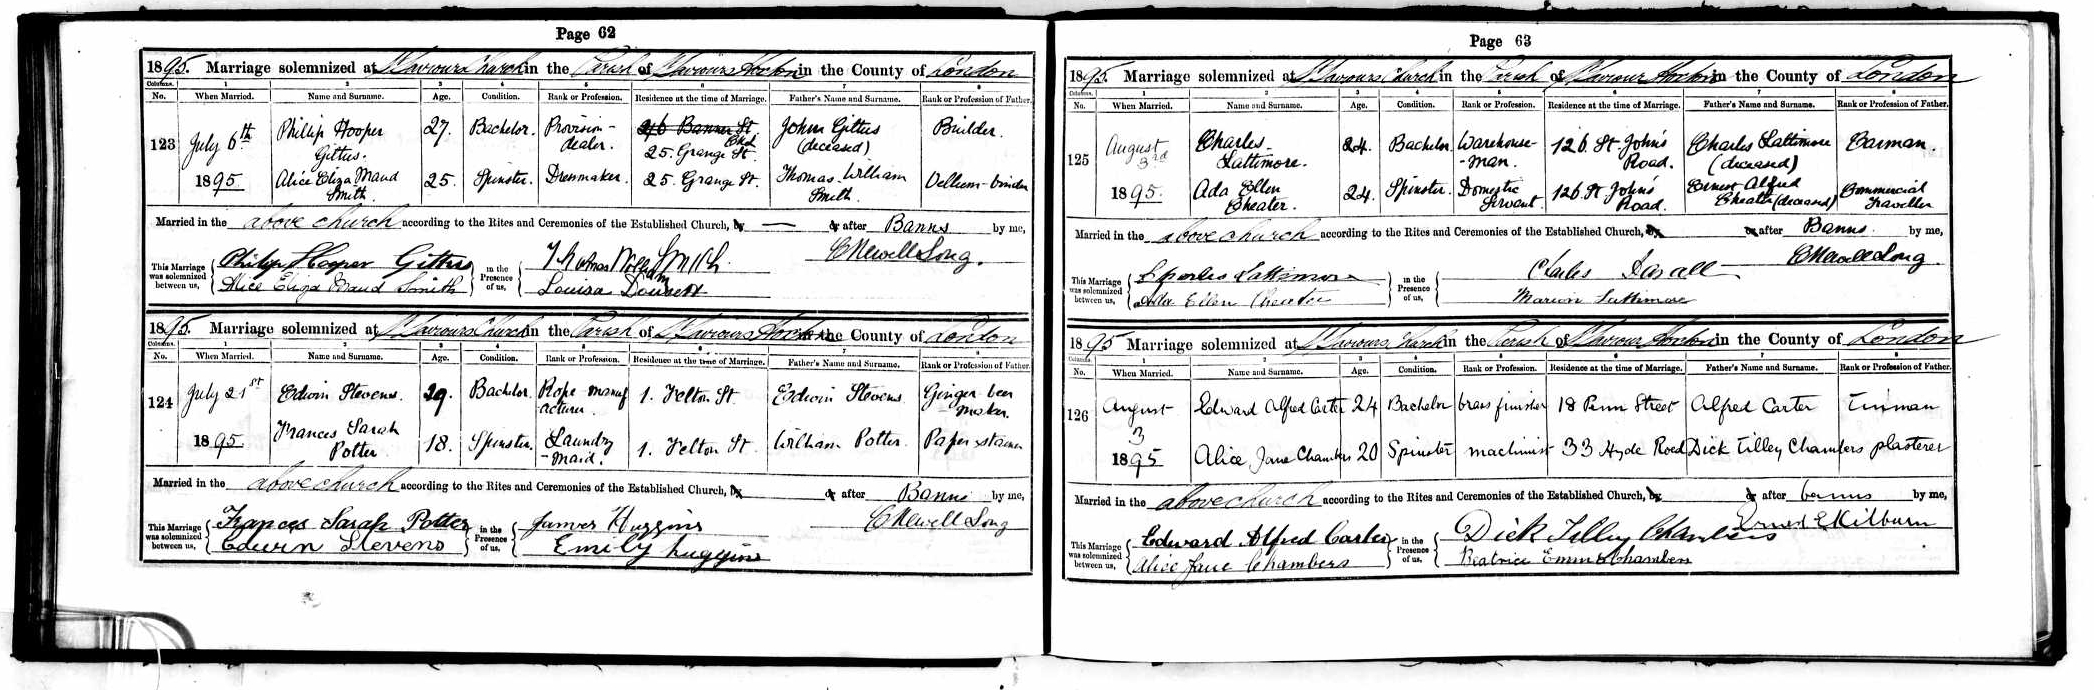 Page 62
1895. Marriage solemnized at St Saviours Church in the Parish of St Saviours Hoxton in the County of London
Columns. 1 2 3 4 5 6 7 8
No. When Married. Name and Surname. Age. Condition. Rank or Profession. Residence at the time of Marriage. Father's Name and Surname. Rank or Profession of Father.
123 July 6th 1895 Phillip Hooper Gittus. 27. Bachelor. Provision-dealer. 25. Grange St. John Gittus (deceased) Builder.
Alice Eliza Maud Smith. 25. Spinster. Dressmaker. 25. Grange St. Thomas William Smith. Vellum-binder
Married in the above church according to the Rites and Ceremonies of the Established Church, by — or after Banns by me,
C Newell Long.
This Marriage was solemnized between us, Philip Hooper Gittus in the Presence of us, Thomas William Smith
Alice Eliza Maud Smith Louisa
1895. Marriage solemnized at St Saviours Church in the Parish of St Saviours Hoxton in the County of London
Columns. 1 2 3 4 5 6 7 8
No. When Married. Name and Surname. Age. Condition. Rank or Profession. Residence at the time of Marriage. Father's Name and Surname. Rank or Profession of Father.
124 July 21st 1895 Edwin Stevens. 29. Bachelor. Rope manufacturer. 1. Felton St. Edwin Stevens. Ginger beer maker.
Frances Sarah Potter 18. Spinster. Laundry-maid. 1. Felton St. William Potter. Paper stainer
Married in the above church according to the Rites and Ceremonies of the Established Church, by or after Banns by me,
C Newell Long
This Marriage was solemnized between us, Frances Sarah Potter in the Presence of us, James Huggins
Edwin Stevens Emily huggins
Page 63
1895. Marriage solemnized at St Saviours Church in the Parish of St Saviour Hoxton in the County of London
Columns. 1 2 3 4 5 6 7 8
No. When Married. Name and Surname. Age. Condition. Rank or Profession. Residence at the time of Marriage. Father's Name and Surname. Rank or Profession of Father.
125 August 3rd 1895. Charles Lattimore. 24. Bachelor. Warehouse-man. 126 St John's Road. Charles Lattimore (deceased) Carman.
Ada Ellen Cheater. 24. Spinster. Domestic Servant. 126 St John's Road. Ernest Alfred Cheater (deceased) Commercial Traveller
Married in the above church according to the Rites and Ceremonies of the Established Church, by or after Banns by me,
C Newell Long.
This Marriage was solemnized between us, Charles Lattimore in the Presence of us, Charles
Ada Ellen Cheater Marion Lattimore
1895 Marriage solemnized at St Saviours Church in the Parish of St Saviour Hoxton in the County of London
Columns. 1 2 3 4 5 6 7 8
No. When Married. Name and Surname. Age. Condition. Rank or Profession. Residence at the time of Marriage. Father's Name and Surname. Rank or Profession of Father.
126 August 3 1895 Edward Alfred Carter 24 Bachelor brass finisher 18 Penn Street Alfred Carter Tinman
Alice Jane Chambers 20 Spinster machinist 33 Hyde Road Dick Tilley Chambers plasterer
Married in the above church according to the Rites and Ceremonies of the Established Church, by or after banns by me,
Ernest E Kilburn
This Marriage was solemnized between us, Edward Alfred Carter in the Presence of us, Dick Tilley Chambers
Alice Jane Chambers Beatrice Emma Chambers